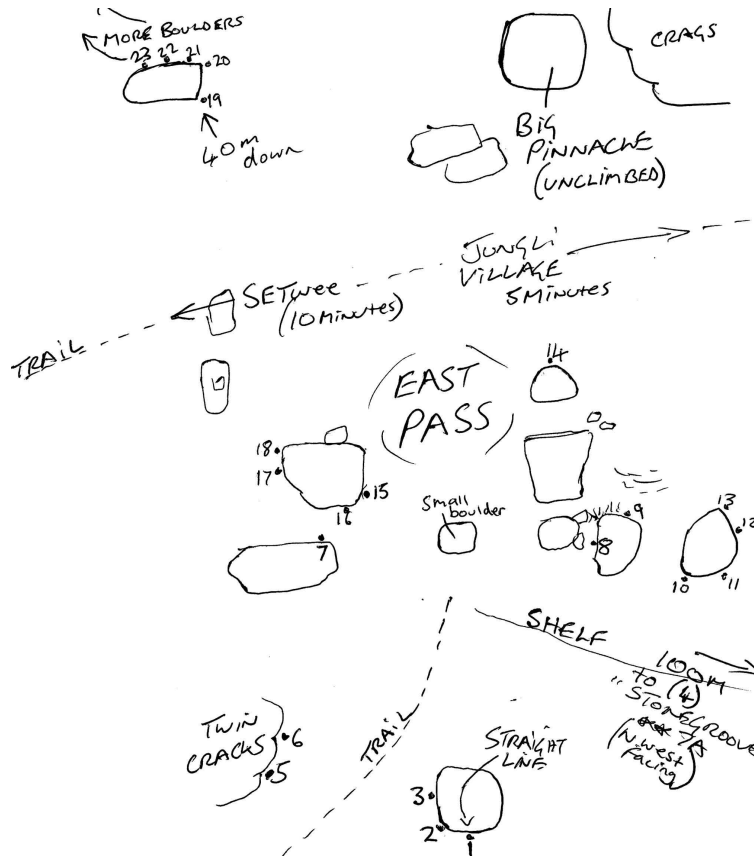 MORE BOULDERS
23 22 21
20
19
40m
down
CRAGS
BIG
PINNACLE
(UNCLIMBED)
JUNGLI
VILLAGE
5 MINUTES
SETWEE
(10 MINUTES)
TRAIL
EAST
PASS
14
18
17
15
16
7
Small
boulder
9
8
13
12
11
10
SHELF
100M
to (4)
"STONEGROOVE
7A
(NWest
Facing)
TWIN
CRACKS
6
5
TRAIL
STRAIGHT
LINE
3
2
1